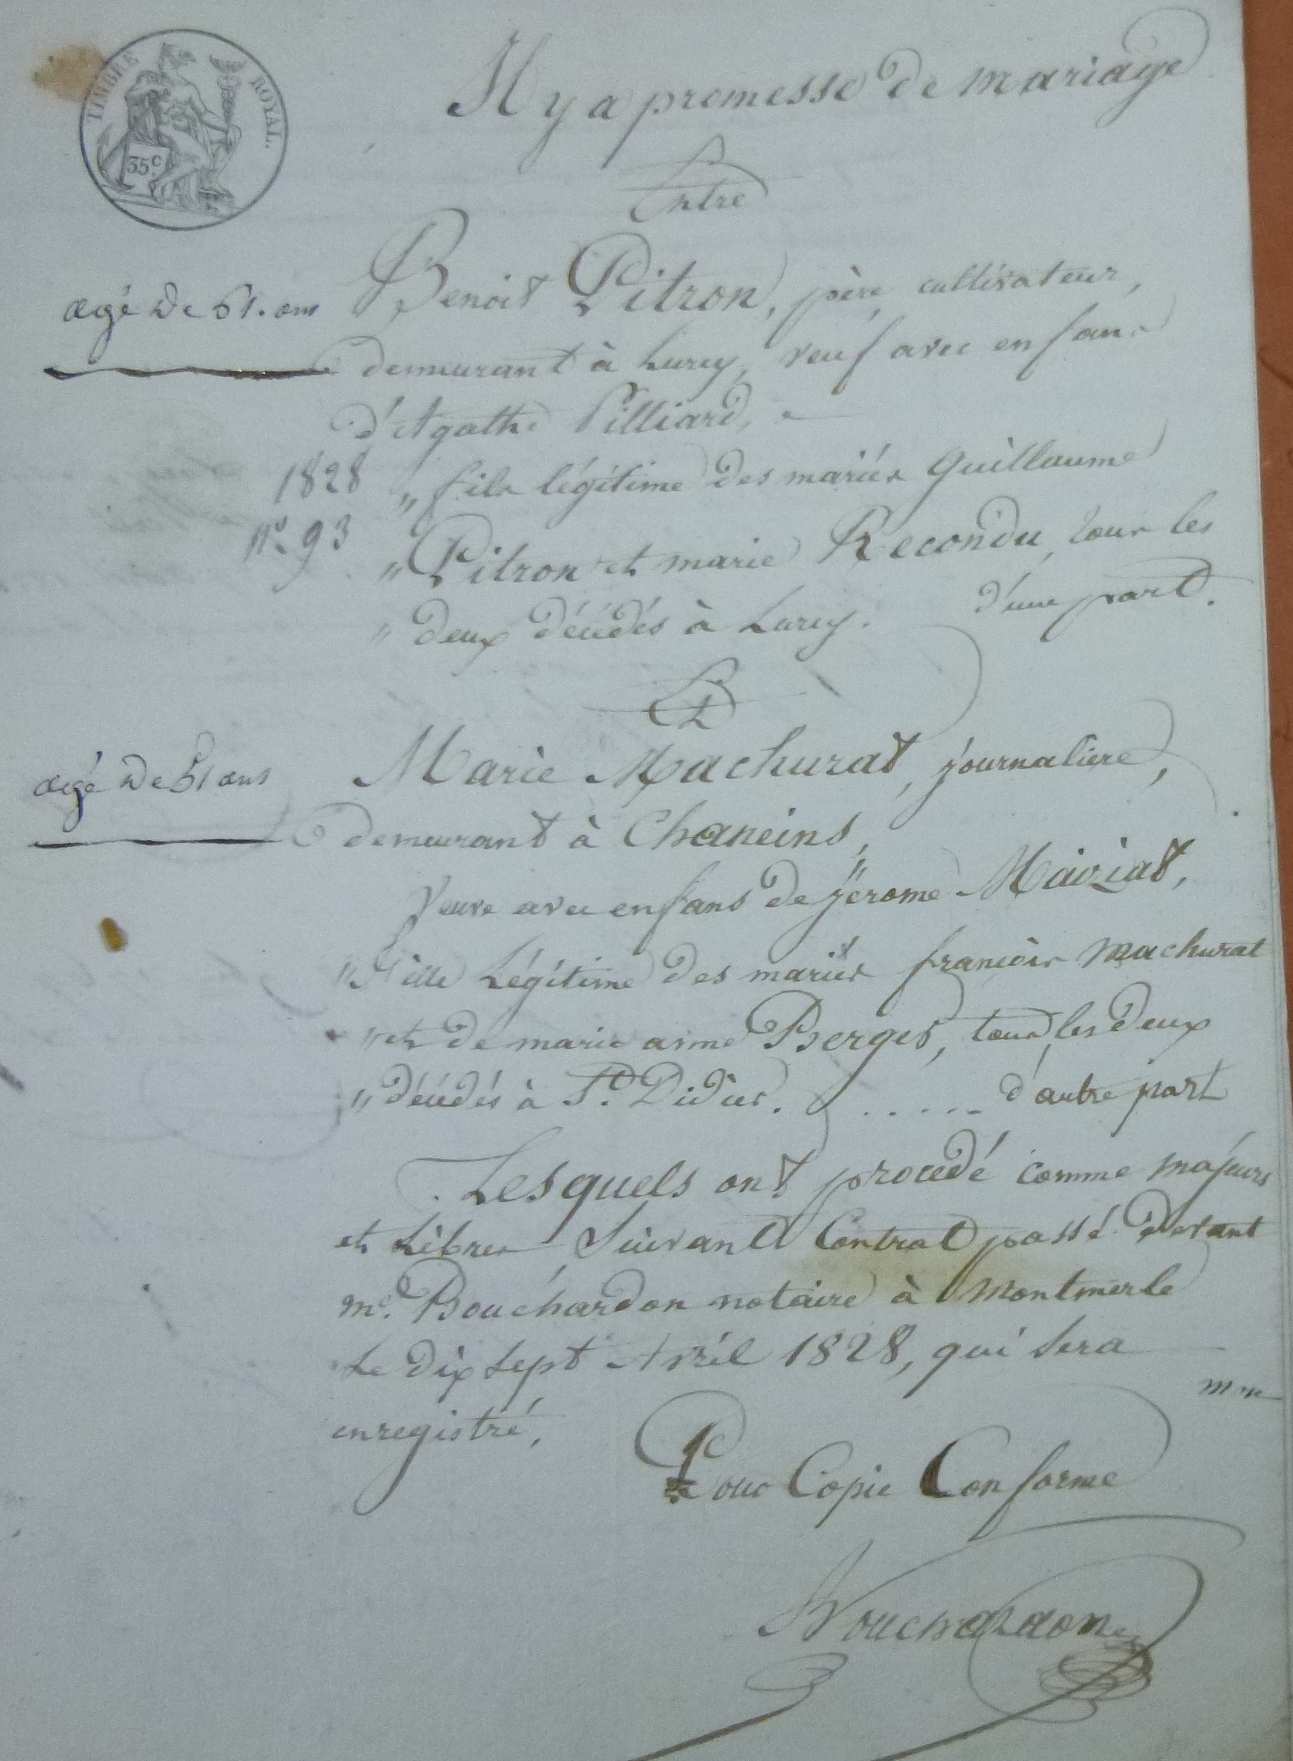 TIMBRE ROYAL.
35c
Il y a promesse de mariage
Entre
agé de 61. ans
Benoit Pitron, père, cultivateur,
demeurant à Lurcy, veuf avec enfans
d'Agathe Pilliard,
1828
N° 93
" fils légitime des mariés Guillaume
" Pitron et marie Recondu, tous les
" deux décédés à Lurcy. d'une part.
Et
agé de 51 ans
Marie Machurat, journalière,
demeurant à Chaneins,
Veuve avec enfans de jérome Maiziat,
" Fille Légitime des mariés françois Machurat
" et de marie anne Berger, tous les deux
" décédés à St. Didier. ..... d'autre part
Lesquels ont procédé comme majeurs
et Libres, Suivant Contrat passé devant
me. Bouchardon notaire à Montmerle
Le dix sept Avril 1828, qui sera
enregistré.
Pour Copie Conforme
Bouchardon